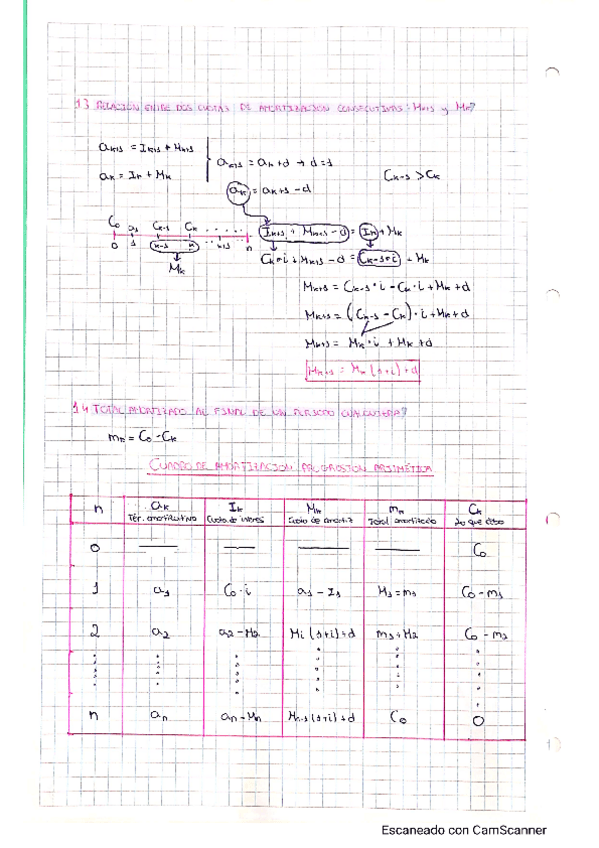 13 RELACIÓN ENTRE DOS CUOTAS DE AMORTIZACIÓN CONSECUTIVAS: Mk+1 y Mk?
ak+1 = Ik+1 + Mk+1
ak = Ik + Mk
ak+1 = ak + d → d = 1
ak = ak+1 - d
Ck-1 > Ck
C0 a1 Ck-1 Ck ......
0 1 k-1 k ... k+1 ... n
Mk
Ik+1 + Mk+1 - d = Ik + Mk
Ck·i + Mk+1 - d = Ck-1·i + Mk
Mk+1 = Ck-1·i - Ck·i + Mk + d
Mk+1 = (Ck-1 - Ck)·i + Mk + d
Mk+1 = Mk·i + Mk + d
Mk+1 = Mk (1+i) + d
14 TOTAL AMORTIZADO AL FINAL DE UN PERIODO CUALQUIERA?
mk = C0 - Ck
CUADRO DE AMORTIZACION PROGRESION ARISMÉTICA
n ak Ik Mk mk Ck
Tér. amortizativo Cuota de interes Cuota de amortiz Total amortizado Lo que debo
0 — — — — C0
1 a1 C0·i a1 - I1 M1 = m1 C0 - m1
2 a2 a2 - M2 Mi (1+i) + d m1 + M2 C0 - m2
n an an - Mn Mn-1 (1+i) + d C0 0
Escaneado con CamScanner